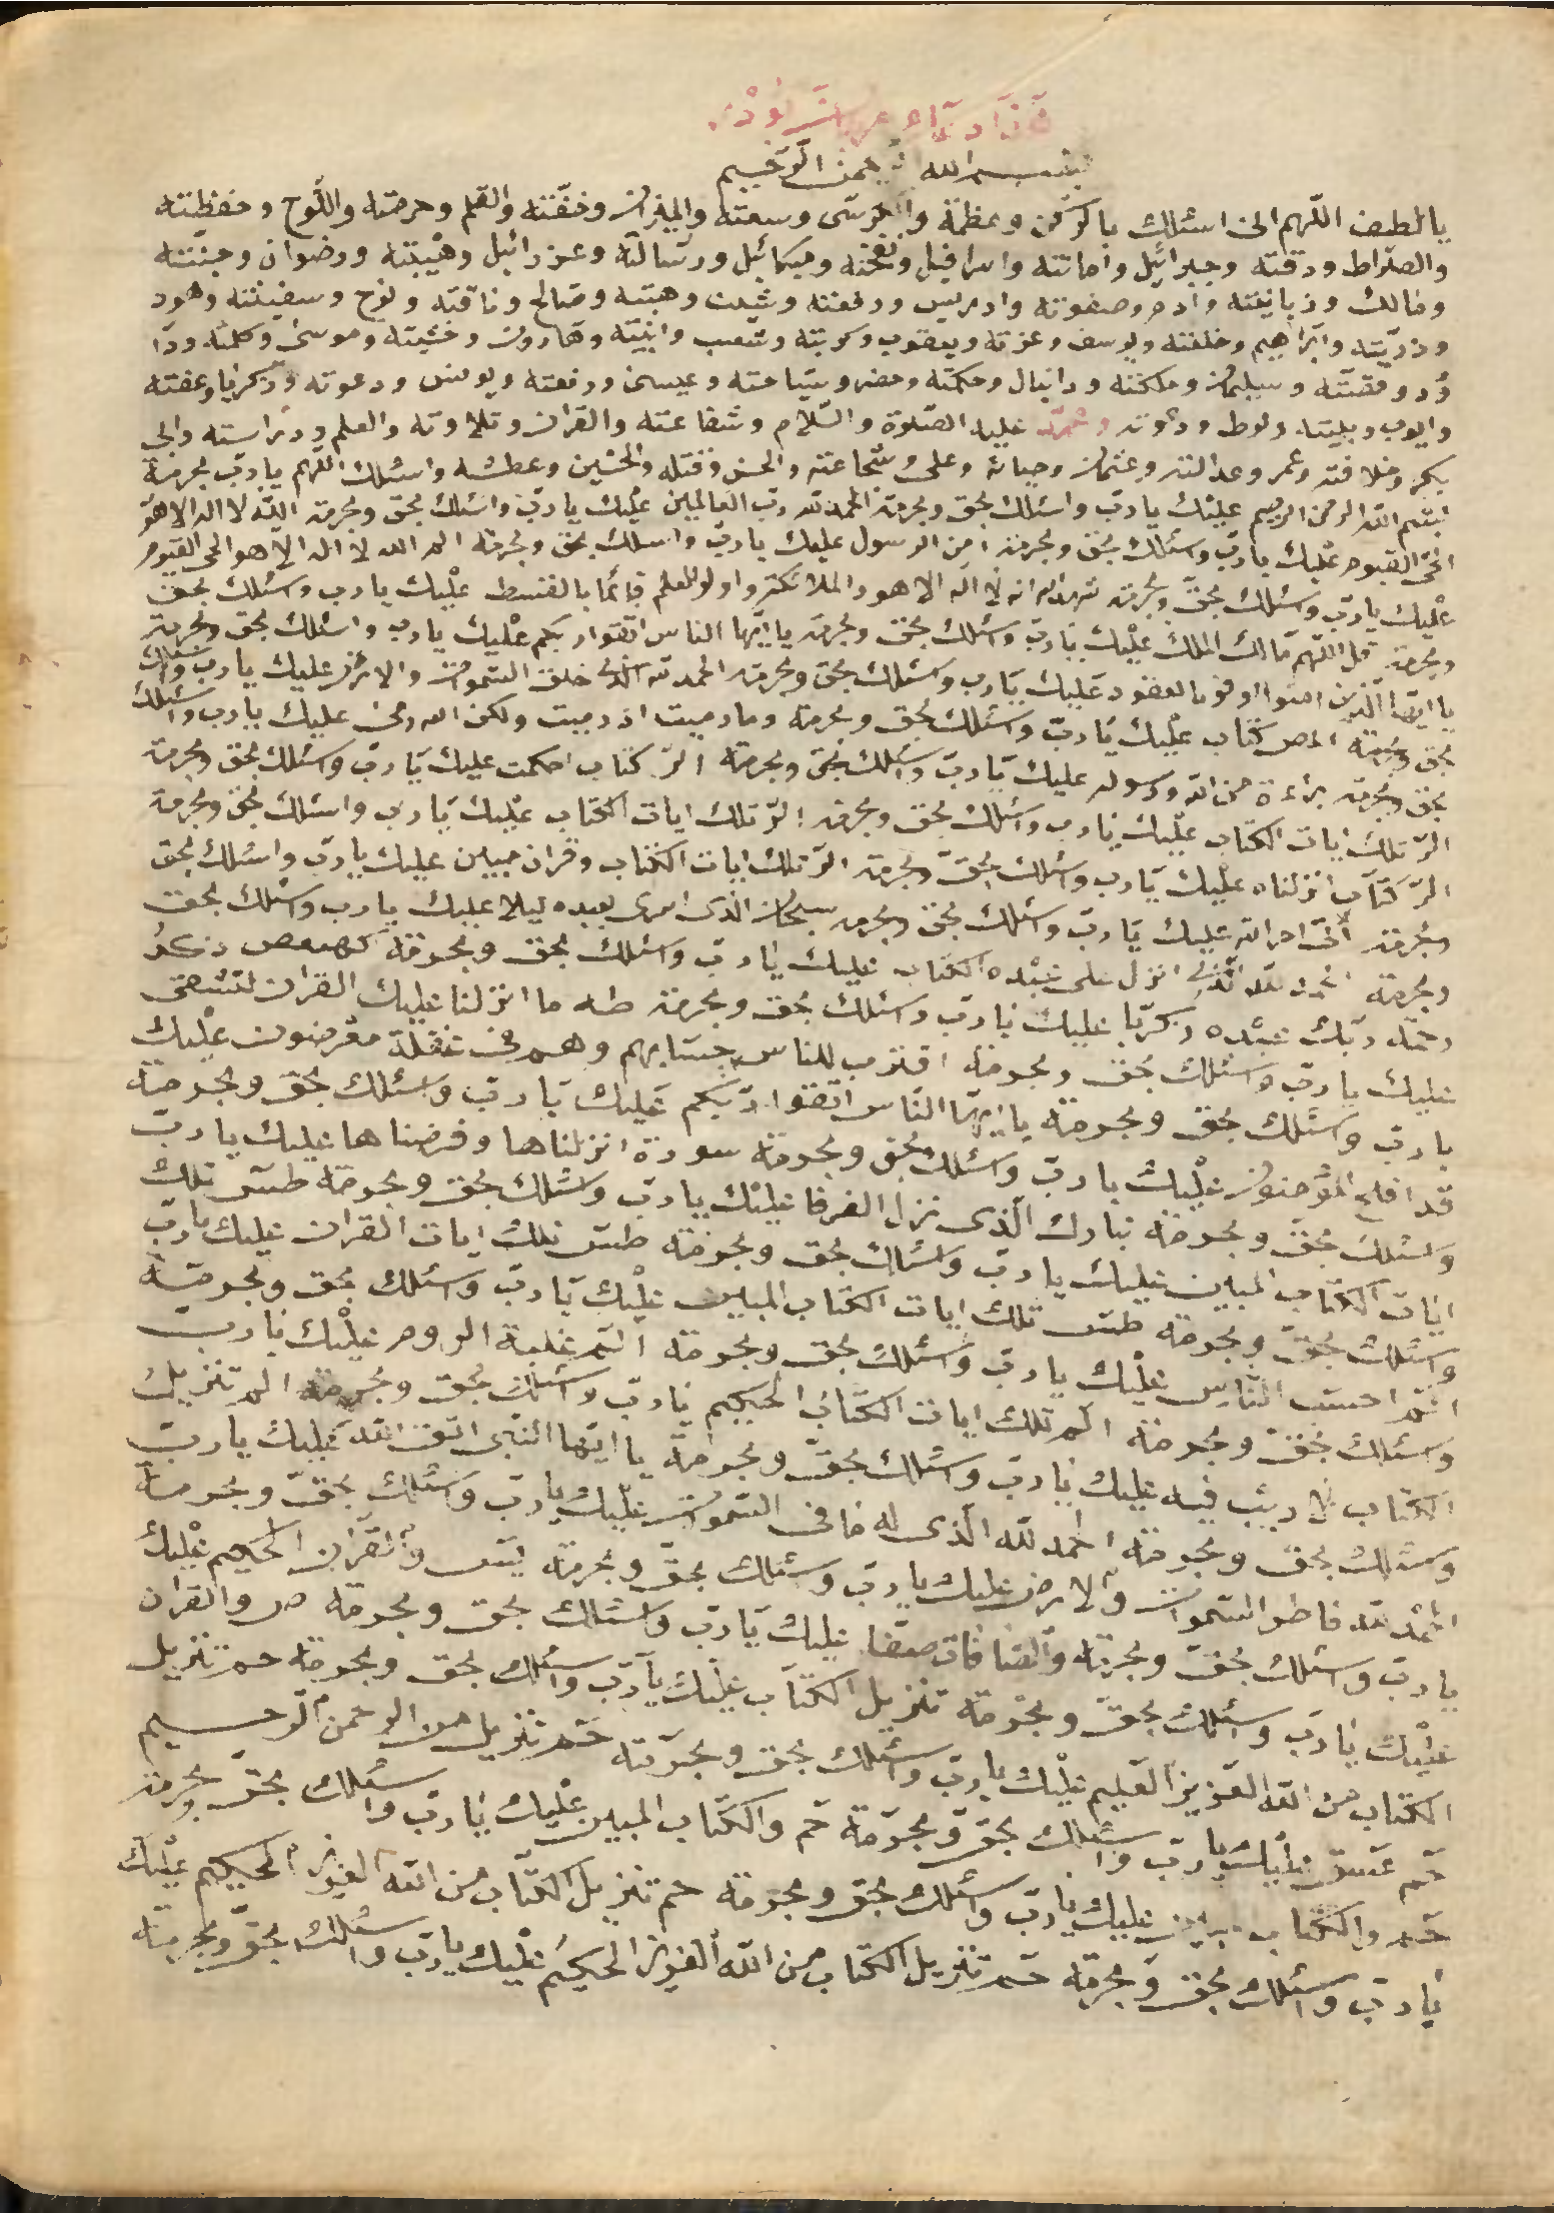 هذا دعاء
بسم الله الرحمن الرحيم
يا لطيف اللّهم انى اسئلك بالكرسى وسعته والميزان وخفّته والقلم وحرمته واللّوح وحفظته
والصّراط ودقّته وجبرائيل وامانته واسرافيل ونفخته وميكائيل ورسالته وعزرائيل وهيبته ورضوان وجنّته
ومالك وزبانيته وادم وصفوته وادريس ورفعته وشيث وهبته وصالح وناقته ونوح وسفينته وهود
وذريّته وابراهيم وخلّته ويوسف وعزته ويعقوب وكربته وشعيب وهارون وخشيته وموسى وكلمته ودا
ود وسليمان وملكته ودانيال وحكمته وخضر وسياحته وعيسى ورفعته ويونس ودعوته وزكريا وعفته
وايوب وبليته ولوط ومحمّد عليه الصّلوة والسّلام وشفاعته والقران وتلاوته والعلم ودراسته وابى
بكر وخلافته وعمر وعدالته وعثمان وحيائه وعلى وشجاعته والحسن وقتله والحسين وعطشه واسئلك اللّهم يا ربّ بحرمة
بسم الله الرحمن الرحيم عليك يا ربّ واسئلك بحق وبحرمة الحمد لله ربّ العالمين عليك يا ربّ واسئلك بحق وبحرمة اللّه لا اله الا هو
الحىّ القيوم عليك يا ربّ واسئلك بحق وبحرمة امن الرسول عليك يا ربّ واسئلك بحق وبحرمة الم الله لا اله الا هو الحى القيوم
عليك يا ربّ واسئلك بحقّ وبحرمة شهد الله انه لا اله الا هو والملائكة واولو العلم قائما بالقسط عليك يا رب واسئلك بحق
وبحرمة قل اللّهم مالك الملك عليك يا ربّ واسئلك بحق وبحرمة يا ايّها الناس اتّقوا ربكم عليك يا رب واسئلك بحق وبحرمة
يا ايها الّذين امنوا اوفوا بالعقود عليك يا رب واسئلك بحق وبحرمة الحمد لله الّذى خلق السّموات والارض عليك يا رب واسئلك
بحق وبحرمة المص كتاب عليك يا ربّ واسئلك بحق وبحرمة وما رميت اذ رميت ولكن الله رمى عليك يا رب واسئلك
بحق وبحرمة براءة من الله ورسوله عليك يا ربّ واسئلك بحق وبحرمة الر كتاب احكمت عليك يا ربّ واسئلك بحق وبحرمة
الر تلك ايات الكتاب عليك يا رب واسئلك بحق وبحرمة الر تلك ايات الكتاب عليك يا رب واسئلك بحق وبحرمة
الر كتاب انزلناه عليك يا رب واسئلك بحقّ وبحرمة الر تلك ايات الكتاب وقران مبين عليك يا ربّ واسئلك بحق
وبحرمة اتى امر الله عليك يا ربّ واسئلك بحق وبحرمة سبحان الّذى اسرى بعبده ليلا عليك يا رب واسئلك بحق
وبحرمة الحمد لله الّذى انزل على عبده الكتاب عليك يا ربّ واسئلك بحق وبحرمة كهيعص ذكر
رحمة ربّك عبده زكريّا عليك يا ربّ واسئلك بحق وبحرمة طه ما انزلنا عليك القران لتشقى
عليك يا ربّ واسئلك بحق وبحرمة اقترب للناس حسابهم وهم فى غفلة معرضون عليك
يا ربّ واسئلك بحق وبحرمة يا ايّها النّاس اتّقوا ربّكم عليك يا ربّ واسئلك بحق وبحرمة
قد افلح المؤمنون عليك يا ربّ واسئلك بحق وبحرمة سورة انزلناها وفرضناها عليك يا ربّ
واسئلك بحق وبحرمة تبارك الّذى نزل الفرقا عليك يا ربّ واسئلك بحق وبحرمة طسم تلك
ايات الكتاب المبين عليك يا ربّ واسئلك بحق وبحرمة طس تلك ايات القران عليك يا ربّ
واسئلك بحقّ وبحرمة طسم تلك ايات الكتاب المبين عليك يا ربّ واسئلك بحق وبحرمة
الم احسب النّاس عليك يا ربّ واسئلك بحق وبحرمة الم غلبة الروم عليك يا رب
واسئلك بحق وبحرمة الم تلك ايات الكتاب الحكيم يا ربّ واسئلك بحق وبحرمة الم تنزيل
الكتاب لا ريب فيه عليك يا ربّ واسئلك بحقّ وبحرمة يا ايّها النّبى اتّق الله عليك يا ربّ
واسئلك بحق وبحرمة الحمد للّه الّذى له ما فى السّموات عليك يا ربّ واسئلك بحقّ وبحرمة
الحمد لله فاطر السّموات والارض عليك يا ربّ واسئلك بحقّ وبحرمة يس والقران الحكيم عليك
يا ربّ واسئلك بحقّ وبحرمة والصّافات صفّا عليك يا ربّ واسئلك بحق وبحرمة ص والقران
عليك يا ربّ واسئلك بحقّ وبحرمة تنزيل الكتاب عليك يا ربّ واسئلك بحق وبحرمة حم تنزيل
الكتاب من الله العزيز العليم عليك يا ربّ واسئلك بحق وبحرمة حم تنزيل من الرحمن الرحيم
حم عسق عليك يا ربّ واسئلك بحقّ وبحرمة حم والكتاب المبين عليك يا ربّ واسئلك بحقّ وبحرمة
حم والكتاب عليك يا ربّ واسئلك بحق وبحرمة حم تنزيل الكتاب من الله العزيز الحكيم عليك
يا ربّ واسئلك بحق وبحرمة حم تنزيل الكتاب من الله العزيز الحكيم عليك يا ربّ واسئلك بحقّ وبحرمة